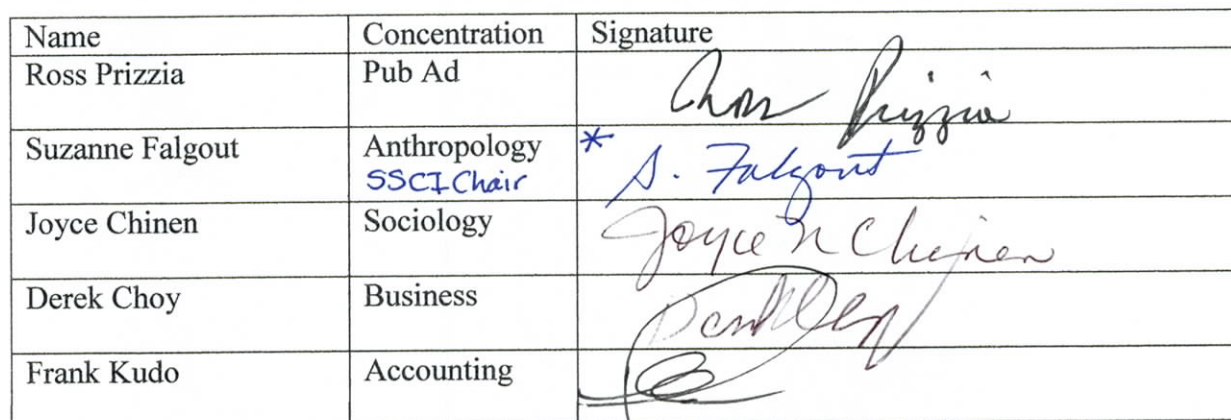 Name Concentration Signature
Ross Prizzia Pub Ad Ross Prizzia
Suzanne Falgout Anthropology * S. Falgout
SSCI Chair
Joyce Chinen Sociology Joyce N Chinen
Derek Choy Business
Frank Kudo Accounting